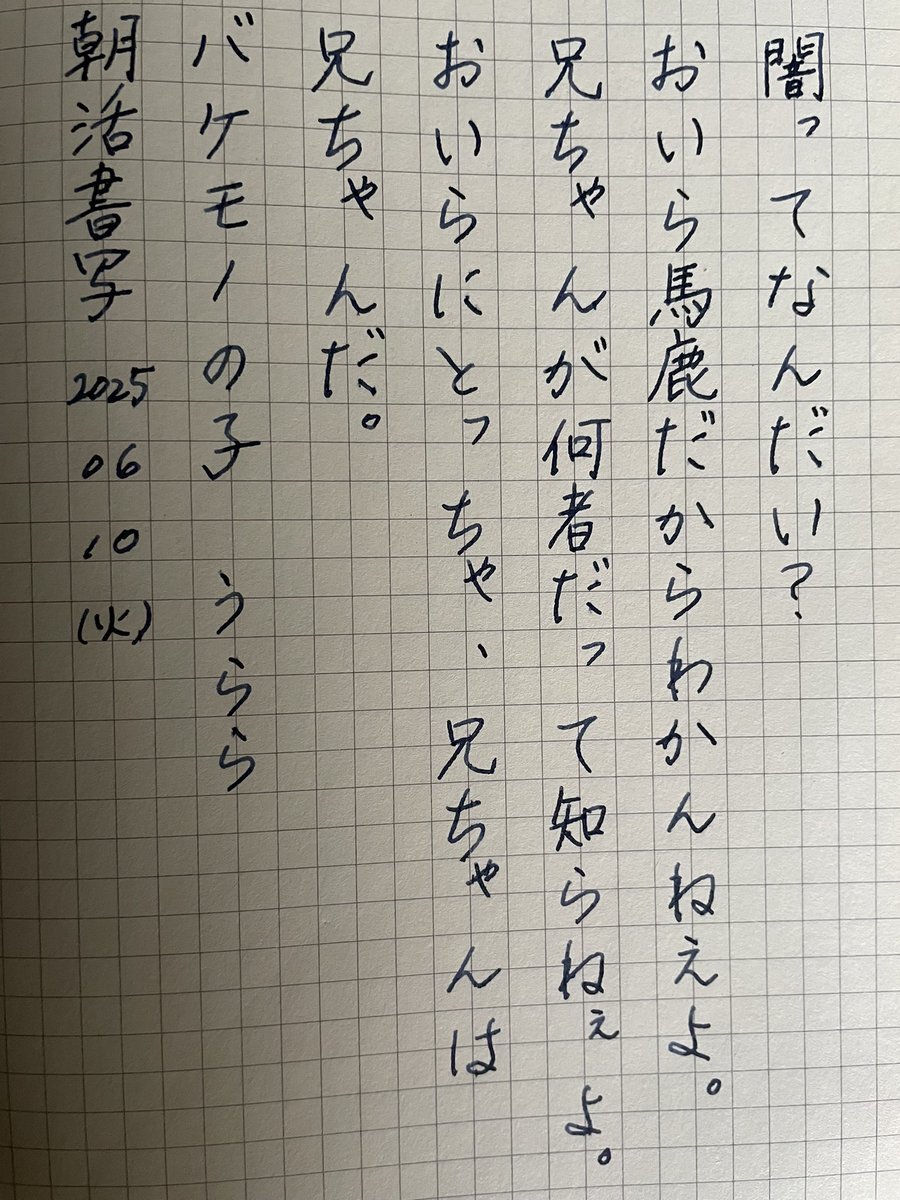 闇ってなんだい?
おいら馬鹿だからわかんねえよ。
兄ちゃんが何者だって知らねぇよ。
おいらにとっちゃ、兄ちゃんは
兄ちゃんだ。
バケモノの子 うらら
朝活書写 2025 06 10 (火)